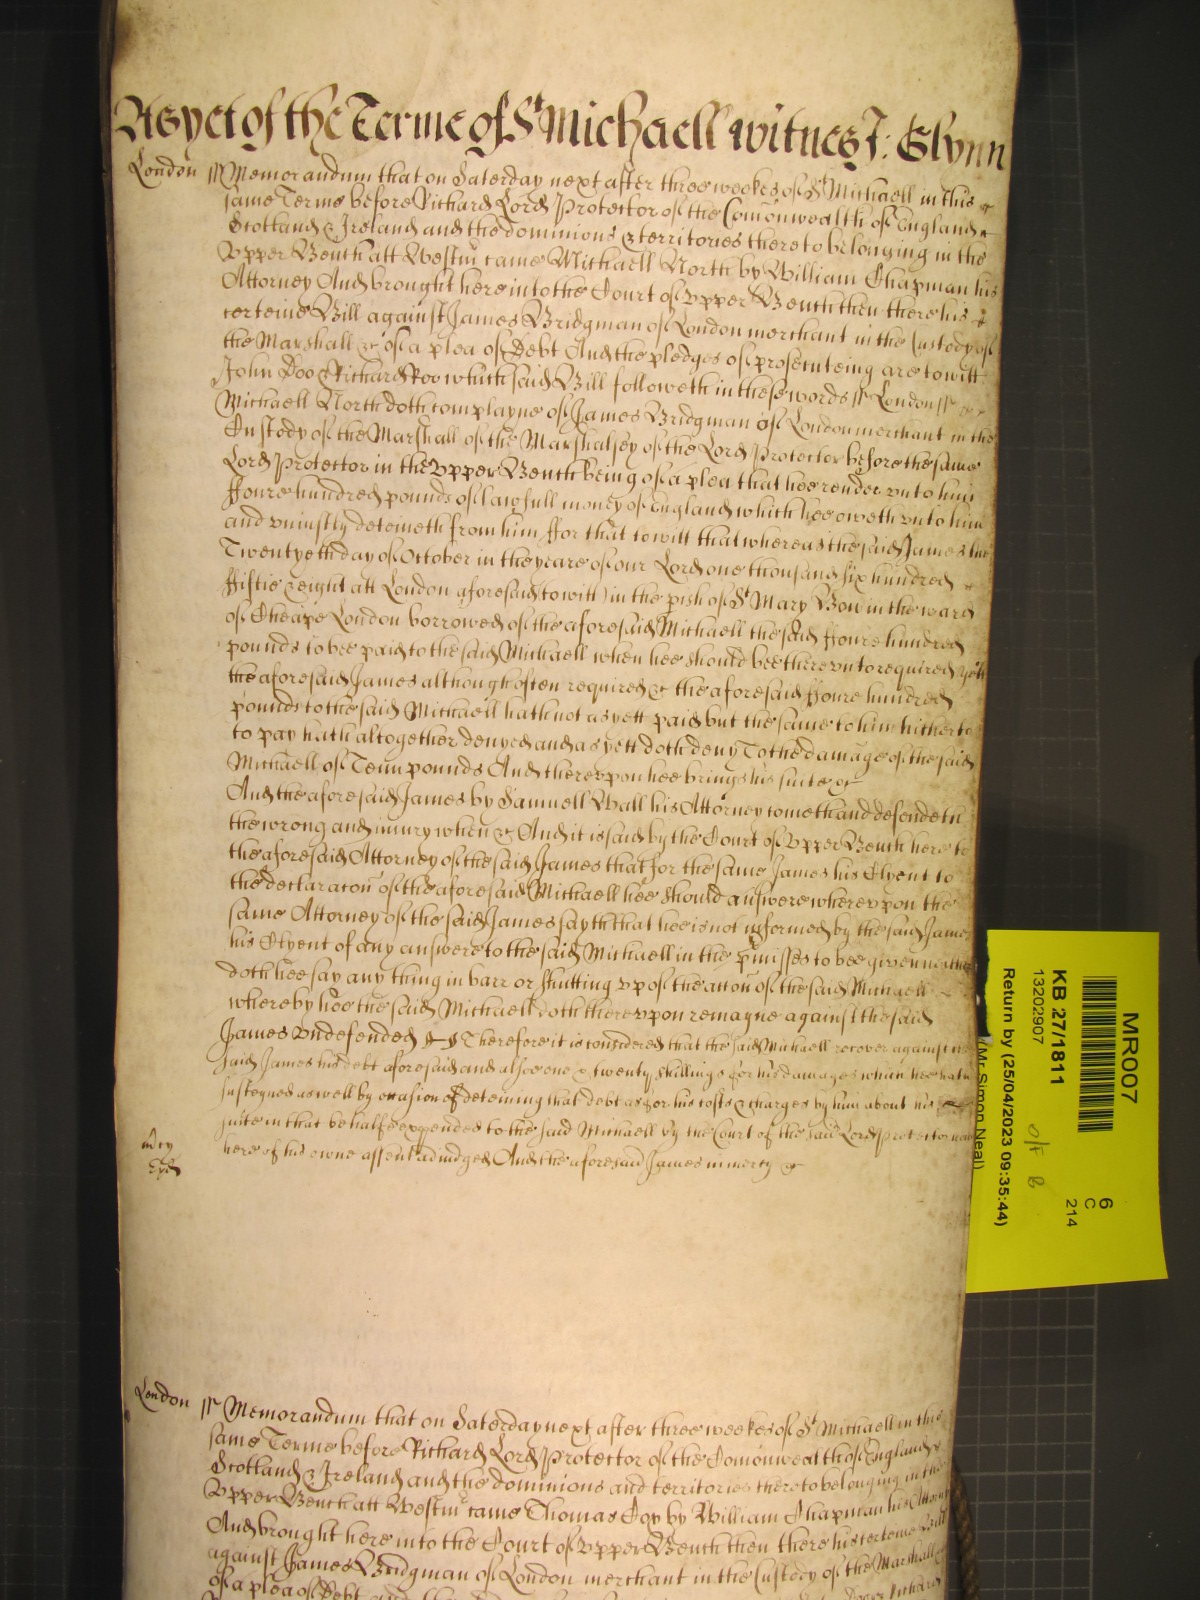 As yet of the Terme of St Michaell witnes J: Glynn
London ss Memorandum that on Saterday next after three weekes of St Michaell in this
same Terme before Richard Lord Protector of the Comonwealth of England
Scotland & Ireland and the dominions & territories thereto belonging in the
Vpper Bench att Westmr came Michaell North by William Chapman his
Attorney And brought here into the Court of Vpper Bench then there his
certeine Bill against James Bridgman of London merchant in the Custody of
the Marshall &c of a plea of Debt And the pledges of prosecuteing are to witt
John Doo & Richard Roo which said Bill followeth in these words ss London ss
Michaell North doth complayne of James Bridgman of London merchant in the
Custody of the Marshall of the Marshalsey of the Lord Protector before the same
Lord Protector in the Vpper Bench being of a plea that hee render vnto him
ffoure hundred pounds of lawfull money of England which hee oweth vnto him
and vniustly deteineth from him ffor that to witt that whereas the said James the
Twentyeth day of October in the yeare of our Lord one thousand six hundred
ffiftie & eight att London aforesaid to witt in the pish of St Mary Bow in the ward
of Cheape London borrowed of the aforesaid Michaell the said ffoure hundred
pounds to bee paid to the said Michaell when hee should bee therevnto required yett
the aforesaid James although often required &c the aforesaid ffoure hundred
pounds to the said Michaell hath not as yett paid but the same to him hitherto
to pay hath altogether denyed and as yett doth deny To the damage of the said
Michaell of Tenn pounds And therevpon hee brings his suite &c
And the aforesaid James by Samuell Wall his Attorney cometh and defendeth
the wrong and iniury when &c And it is said by the Court of Vpper Bench here to
the aforesaid Attorney of the said James that for the same James his Clyent to
the declaracon of the aforesaid Michaell hee should answere wherevpon the
same Attorney of the said James sayth that hee is not informed by the said James
his Clyent of any answere to the said Michaell in the pmisses to bee given neither
doth hee say any thing in barr or shutting vp of the accon of the said Michaell
whereby hee the said Michaell doth therevpon remayne against the said
James vndefended &c Therefore it is considered that the said Michaell recover against the
said James his debt aforesaid and alsoe one & twenty shillings for his damages which hee hath
susteyned as well by occasion of deteining that debt as for his costs & charges by him about his
suite in that behalfe expended to the said Michaell by the Court of the said Lord Protector now
here of his owne assent adiudged And the aforesaid James in mercy &c
mcy
London ss Memorandum that on Saterday next after three weekes of St Michaell in this
same Terme before Richard Lord Protector of the Comonwealth of England
Scotland & Ireland and the dominions and territories thereto belonging in the
Vpper Bench att Westmr came Thomas Coy by William Chapman his Attorny
And brought here into the Court of Vpper Bench then there his certeine Bill
against James Bridgman of London merchant in the Custody of the Marshall
of a plea of Debt
MR007
KB 27/1811
13202907
Return by (25/04/2023 09:35:44)
(Mr Simon Neal)
6
C
214